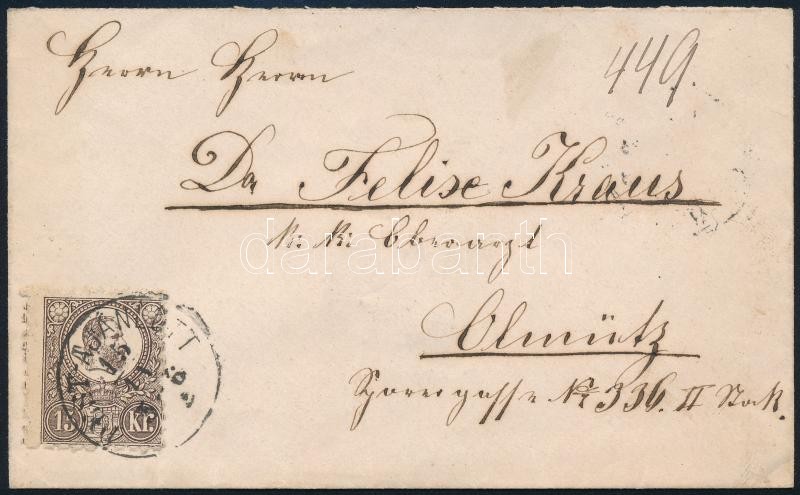 Herrn Herrn
449.
Dr Felix Kraus
k: k: Oberarzt
darabanth
Olmütz
No 336. II Stock.
15 Kr.